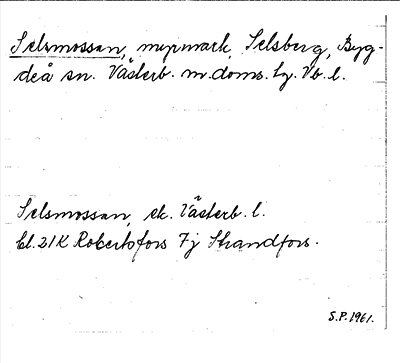 Selsmossan, myrmark, Selsberg, Byg-
deå sn. Västerb. m. doms. lg. Vb. l.
Selsmossan, ek. Västerb. l.
bl. 21K Robertsfors 7j Strandfors.
S.P. 1961.